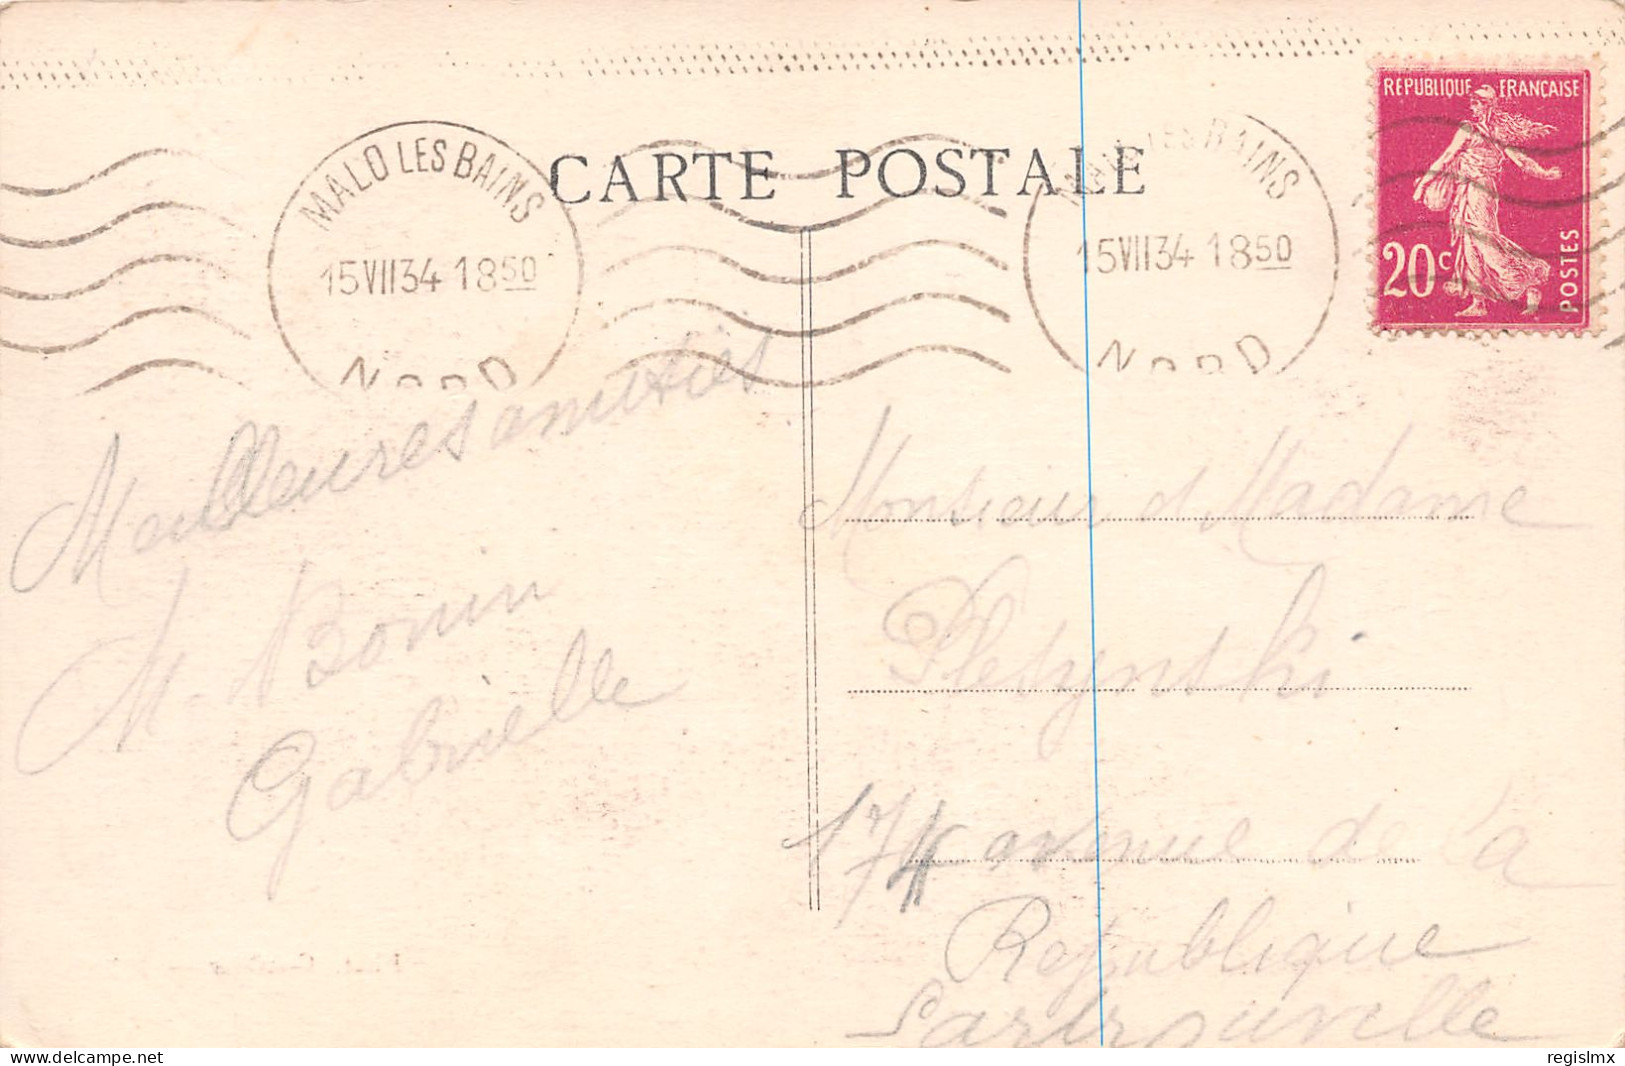 CARTE POSTALE
MALO LES BAINS
15 VII 34 18 50
NORD
MALO LES BAINS
15 VII 34 18 50
NORD
REPUBLIQUE FRANCAISE
20c
POSTES
Meilleures amitiés
M. Bonin
Gabrielle
Monsieur et Madame
Plesynski
174 avenue de la
République
Sartrouville
delcampe.net
regislmx